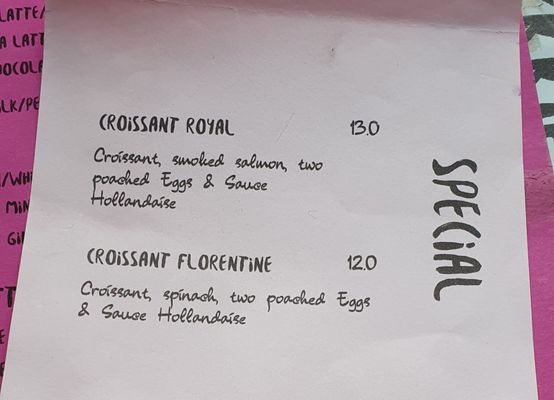 LATTE/
A LATT
OCOLA
LK/PE
/WHI
MIN
GIN
CROISSANT ROYAL 13.0
Croissant, smoked salmon, two
poached Eggs & Sauce
Hollandaise
CROISSANT FLORENTINE 12.0
Croissant, spinach, two poached Eggs
& Sauce Hollandaise
SPECIAL